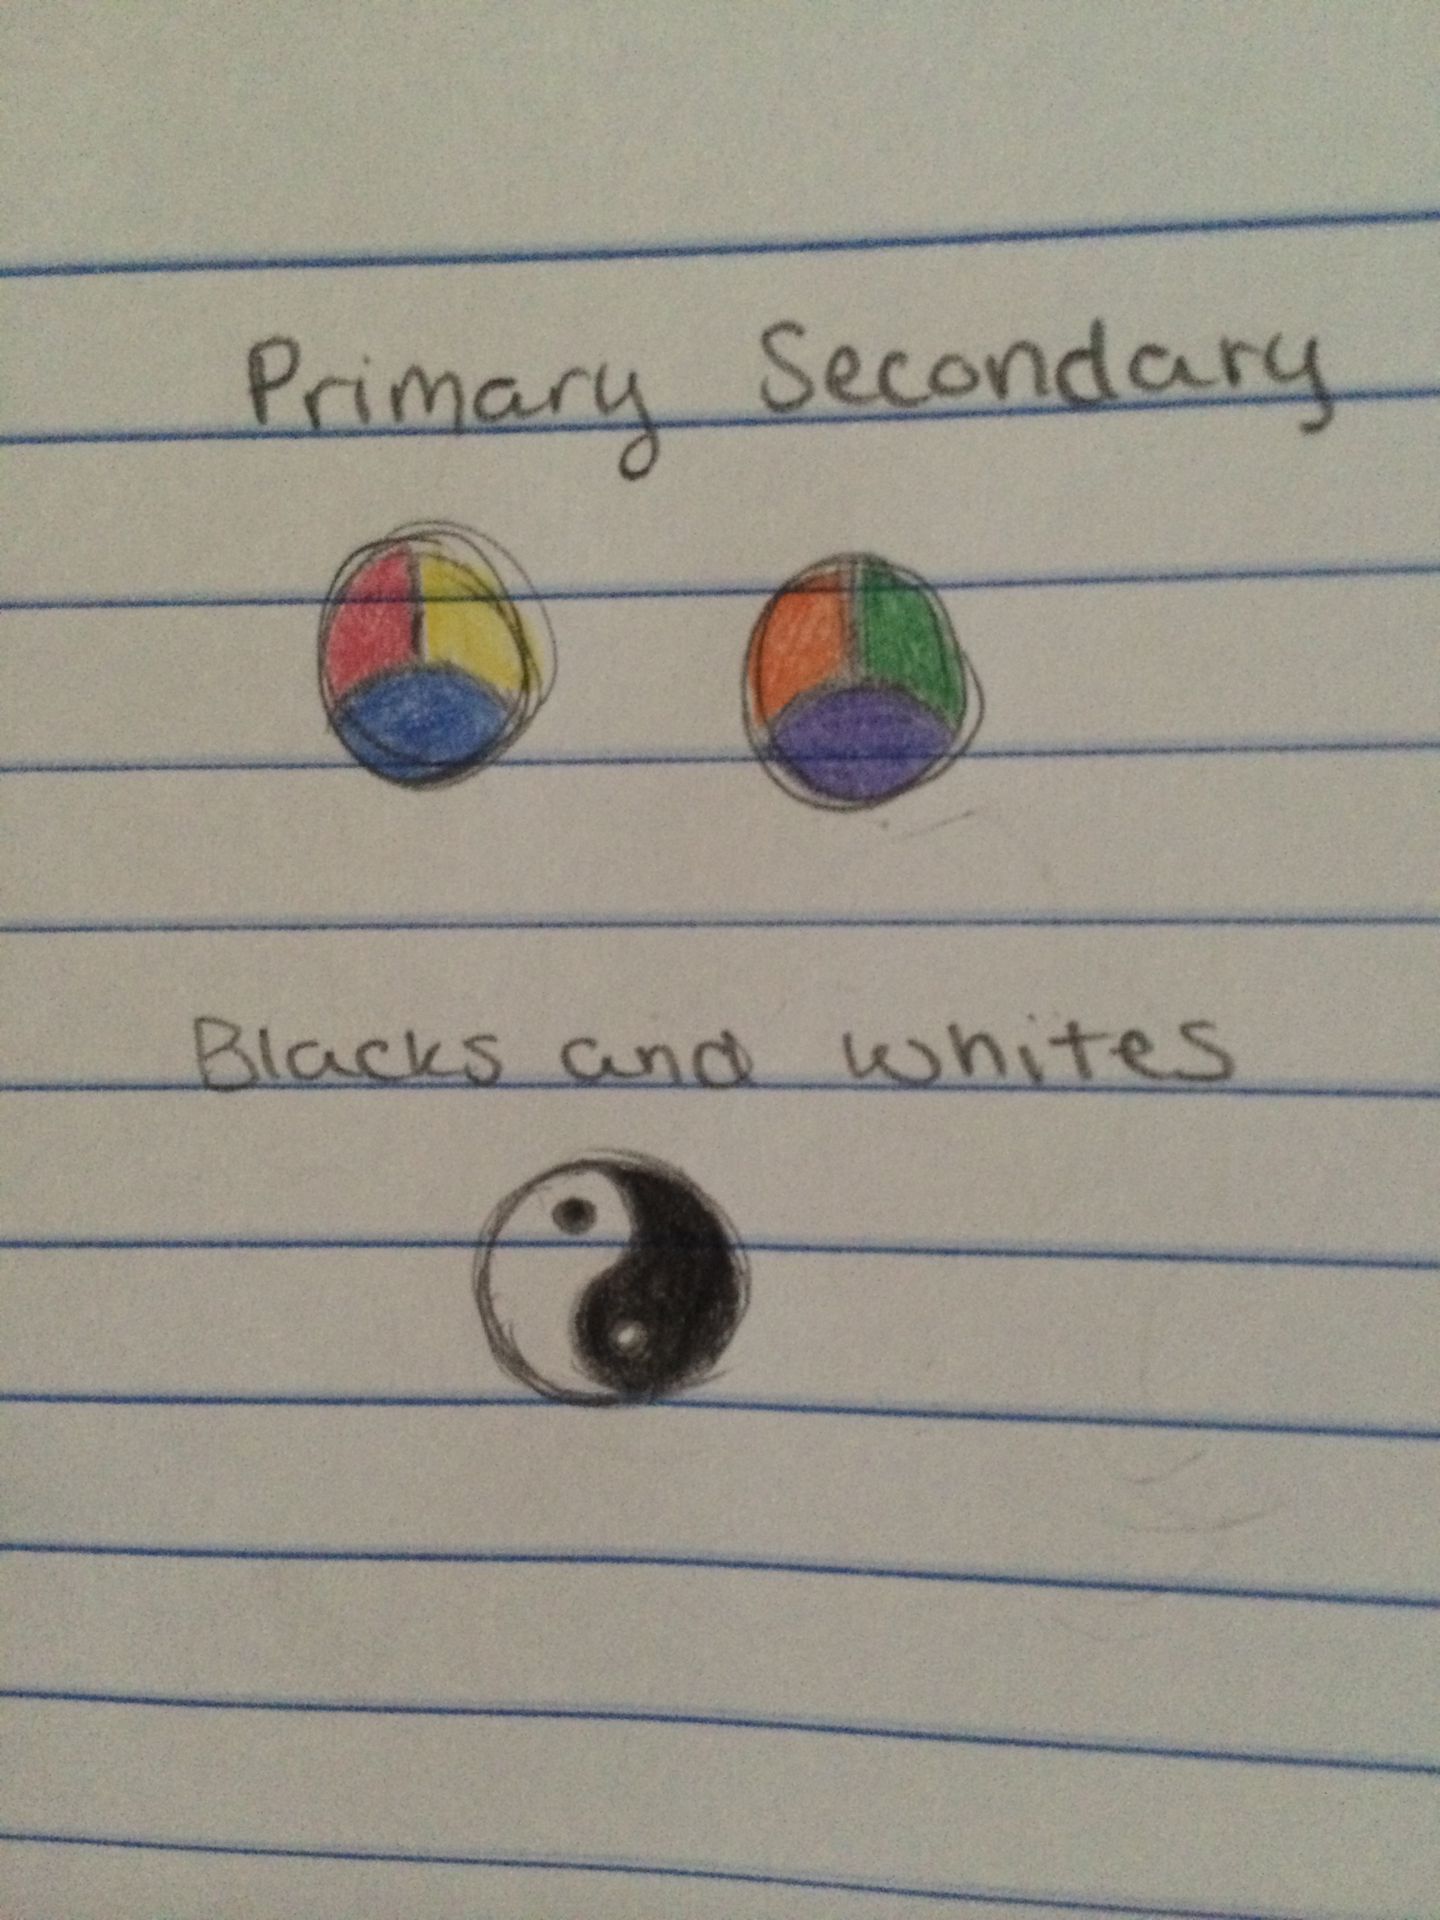 Primary Secondary
Blacks and whites